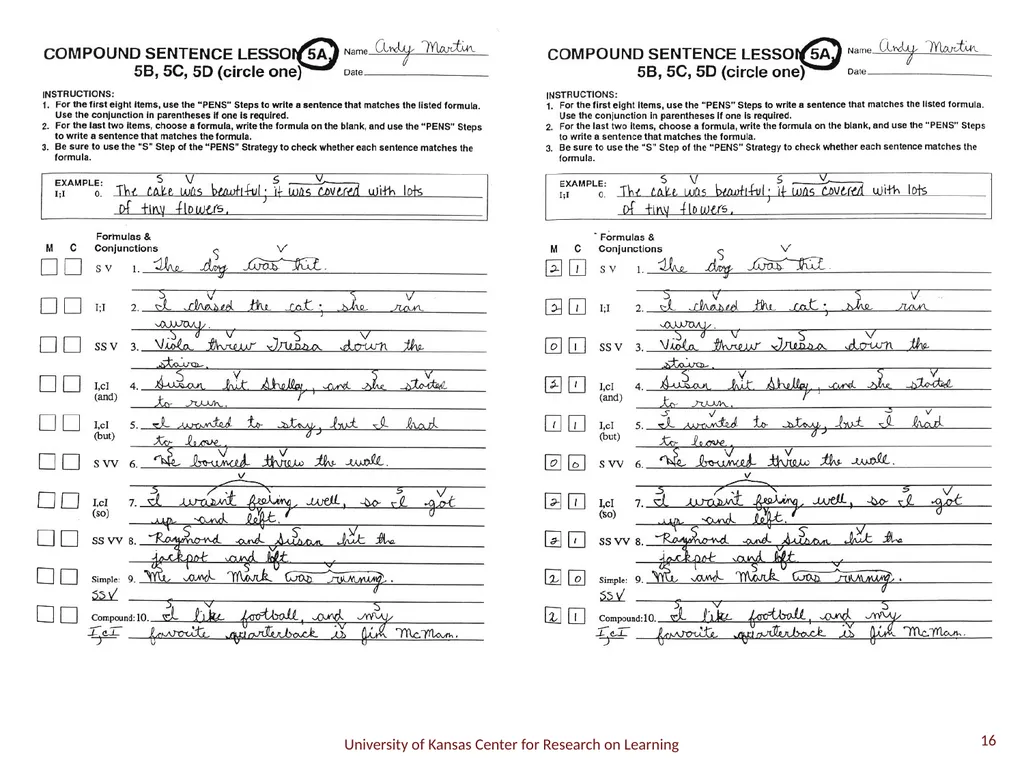 COMPOUND SENTENCE LESSON 5A,
5B, 5C, 5D (circle one)
Name Andy Martin
Date
INSTRUCTIONS:
1. For the first eight items, use the "PENS" Steps to write a sentence that matches the listed formula.
Use the conjunction in parentheses if one is required.
2. For the last two items, choose a formula, write the formula on the blank, and use the "PENS" Steps
to write a sentence that matches the formula.
3. Be sure to use the "S" Step of the "PENS" Strategy to check whether each sentence matches the
formula.
S V S V
EXAMPLE:
I;I 0. The cake was beautiful; it was covered with lots
of tiny flowers.
Formulas &
M C Conjunctions
S V
S V 1. The dog was hit.
S V S V
I;I 2. I chased the cat; she ran
away.
S V S V
SS V 3. Viola threw Tressa down the
stairs.
S V S V
I,cI 4. Susan hit Shelley, and she started
(and) to run.
I,cI 5. I wanted to stay, but I had
(but) to leave.
S V V
S VV 6. He bounced threw the wall.
S V S V
I,cI 7. I wasn't feeling well, so I got
(so) up and left.
S S V
SS VV 8. Raymond and Susan hit the
V
jackpot and left.
S S V
Simple: 9. Me and Mark was running.
SSV
S V S
Compound: 10. I like football, and my
V
I,cI favorite quarterback is Jim McMam.
COMPOUND SENTENCE LESSON 5A,
5B, 5C, 5D (circle one)
Name Andy Martin
Date
INSTRUCTIONS:
1. For the first eight items, use the "PENS" Steps to write a sentence that matches the listed formula.
Use the conjunction in parentheses if one is required.
2. For the last two items, choose a formula, write the formula on the blank, and use the "PENS" Steps
to write a sentence that matches the formula.
3. Be sure to use the "S" Step of the "PENS" Strategy to check whether each sentence matches the
formula.
S V S V
EXAMPLE:
I;I 0. The cake was beautiful; it was covered with lots
of tiny flowers.
Formulas &
M C Conjunctions
S V
2 1 S V 1. The dog was hit.
S V S V
2 1 I;I 2. I chased the cat; she ran
away.
S V S V
0 1 SS V 3. Viola threw Tressa down the
stairs.
S V S V
2 1 I,cI 4. Susan hit Shelley, and she started
(and) to run.
S V S V
1 1 I,cI 5. I wanted to stay, but I had
(but) to leave.
S V V
0 0 S VV 6. He bounced threw the wall.
S V S V
2 1 I,cI 7. I wasn't feeling well, so I got
(so) up and left.
S S V
2 1 SS VV 8. Raymond and Susan hit the
V
jackpot and left.
S S V
2 0 Simple: 9. Me and Mark was running.
SSV
S V S
2 1 Compound: 10. I like football, and my
V
I,cI favorite quarterback is Jim McMam.
University of Kansas Center for Research on Learning
16